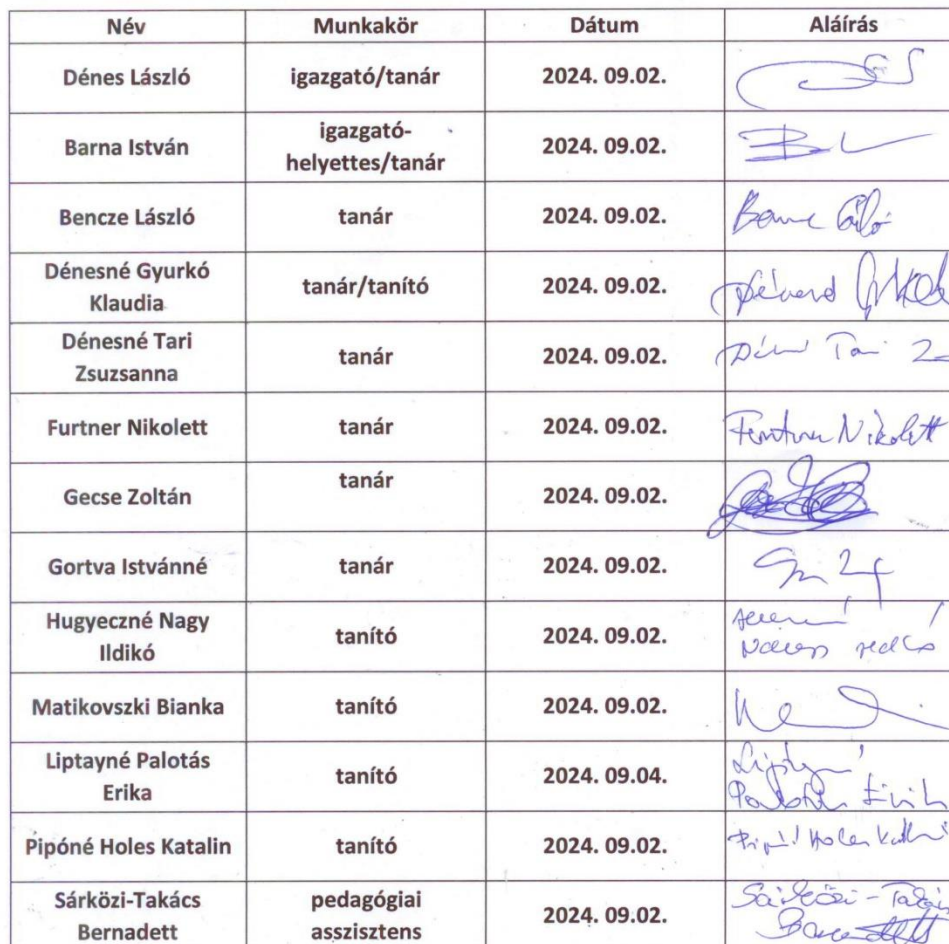 Név Munkakör Dátum Aláírás
Dénes László igazgató/tanár 2024. 09.02.
Barna István igazgató-
helyettes/tanár 2024. 09.02.
Bencze László tanár 2024. 09.02.
Dénesné Gyurkó
Klaudia tanár/tanító 2024. 09.02.
Dénesné Tari
Zsuzsanna tanár 2024. 09.02.
Furtner Nikolett tanár 2024. 09.02. Furtner Nikolett
Gecse Zoltán tanár 2024. 09.02.
Gortva Istvánné tanár 2024. 09.02.
Hugyeczné Nagy
Ildikó tanító 2024. 09.02.
Matikovszki Bianka tanító 2024. 09.02.
Liptayné Palotás
Erika tanító 2024. 09.04.
Pipóné Holes Katalin tanító 2024. 09.02.
Sárközi-Takács
Bernadett pedagógiai
asszisztens 2024. 09.02. Sárközi-Takács
Bernadett